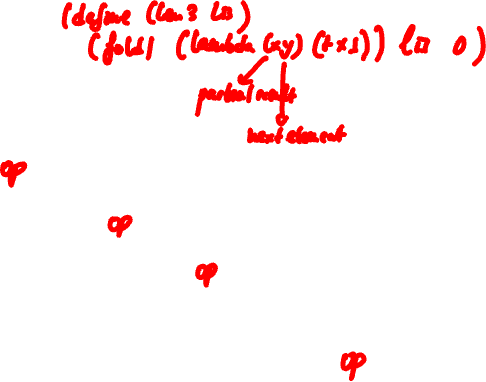 (define (len3 lis)
(foldl (lambda (x y) (+ x 1)) lis 0)
partial result
next element
op
op
op
op